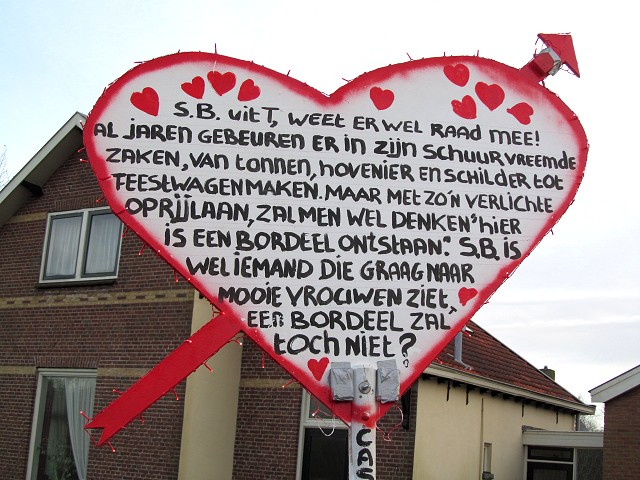 S.B. uit T, weet er wel raad mee!
Al jaren gebeuren er in zijn schuur vreemde
zaken, van tonnen, hovenier en schilder tot
feestwagen maken. Maar met zo'n verlichte
oprijlaan, zal men wel denken "hier
is een bordeel ontstaan". S.B. is
wel iemand die graag naar
mooie vrouwen ziet,
een bordeel zal
toch niet?
CAS